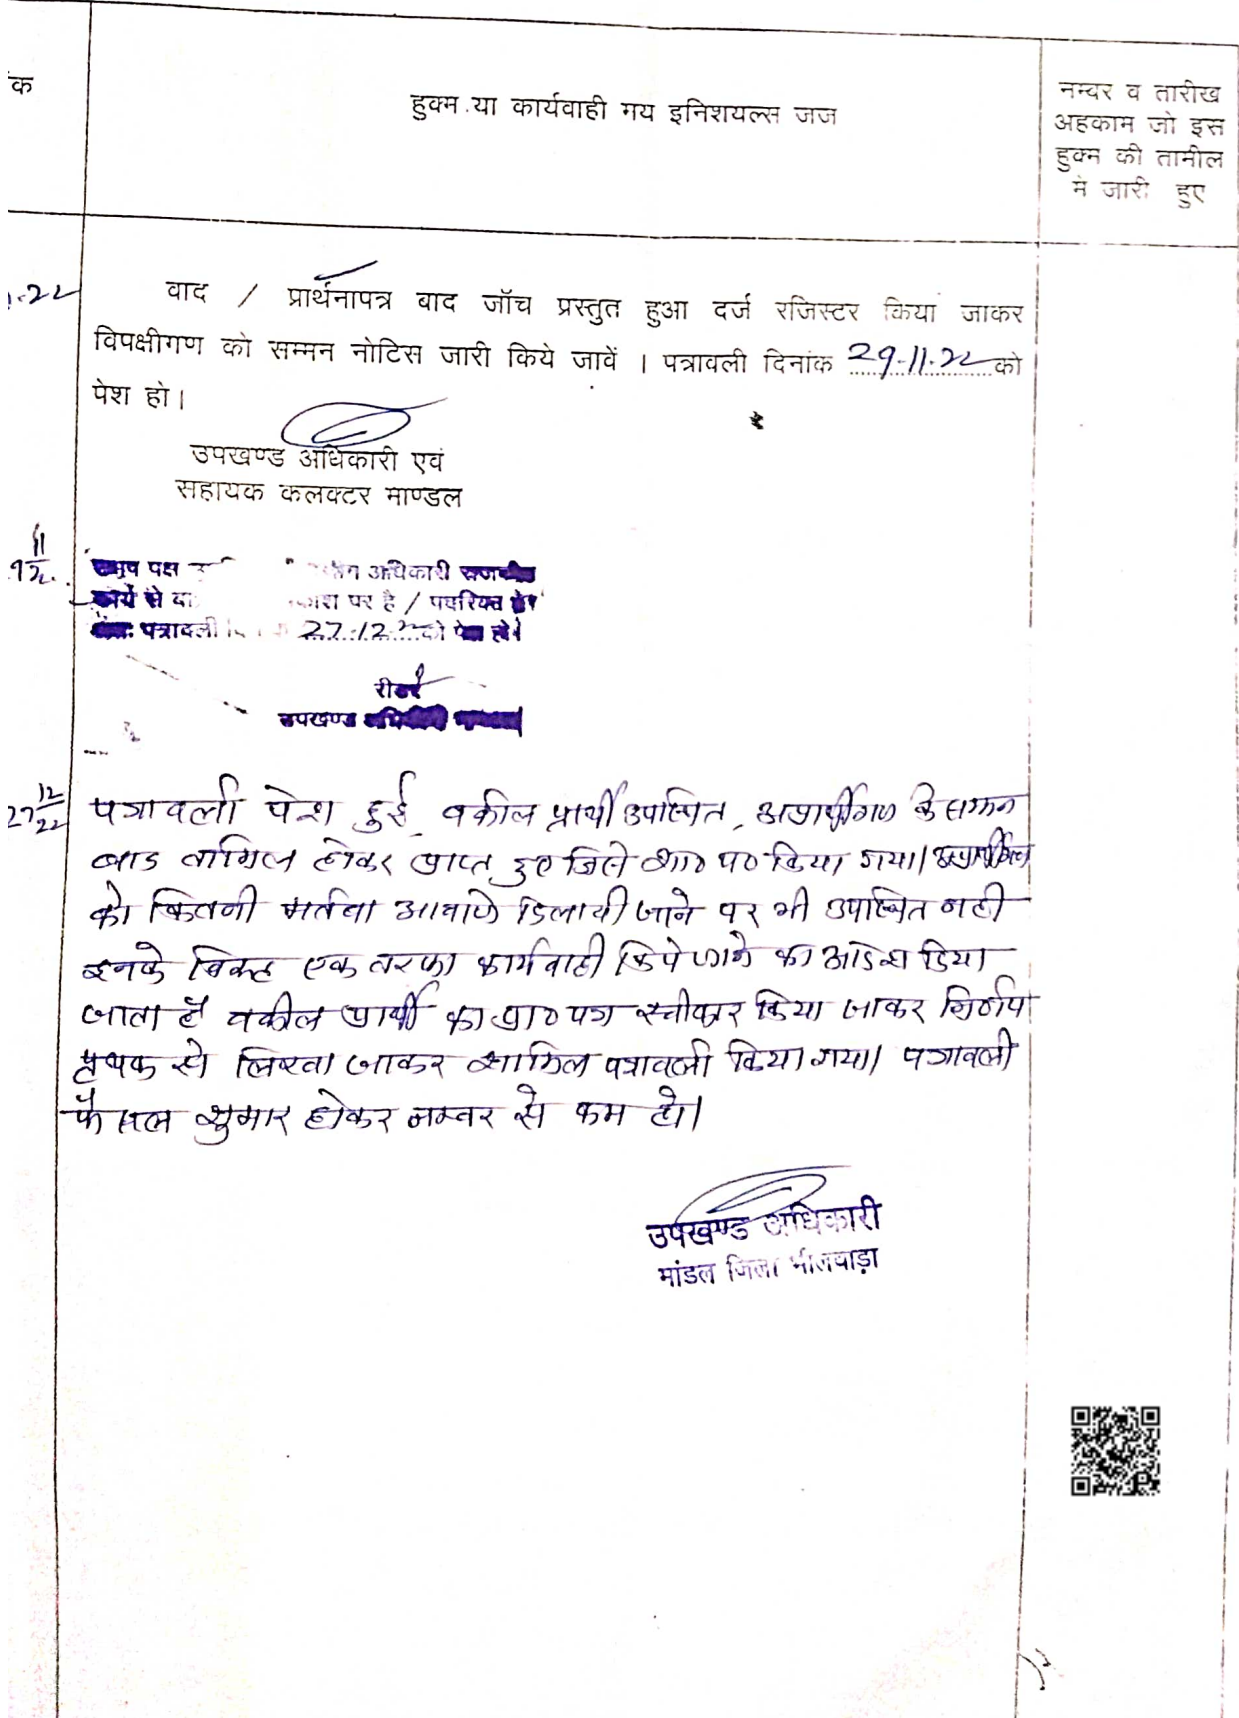 क
हुक्म या कार्यवाही मय इनिशयल्स जज
नम्बर व तारीख
अहकाम जो इस
हुक्म की तामील
में जारी हुए
वाद / प्रार्थनापत्र बाद जॉच प्रस्तुत हुआ दर्ज रजिस्टर किया जाकर
विपक्षीगण को सम्मन नोटिस जारी किये जावें । पत्रावली दिनांक 29-11-22 को
पेश हो।
उपखण्ड अधिकारी एवं
सहायक कलक्टर माण्डल
पक्ष अधिकारी
से पर है /
पत्रावली 27.12.22 को पेश हो।
रीडर
उपखण्ड
27 12/22
पत्रावली पेश हुई वकील प्रार्थी उपस्थित, अप्रार्थीगण के सम्मन
बाद तामिल होकर प्राप्त हुए जिसे शा० प० किया गया। अप्रार्थीगण
को कितनी मर्तबा आवाजे दिलायी जाने पर भी उपस्थित नही
इनके विरुद्ध एक तरफा कार्यवाही किये जाने का आदेश दिया
जाता है वकील प्रार्थी का प्रा० पत्र स्वीकार किया जाकर निर्णय
पृथक से लिखा जाकर शामिल पत्रावली किया गया। पत्रावली
फैसल शुमार होकर नम्बर से कम हो।
उपखण्ड अधिकारी
मांडल जिला भीलवाड़ा